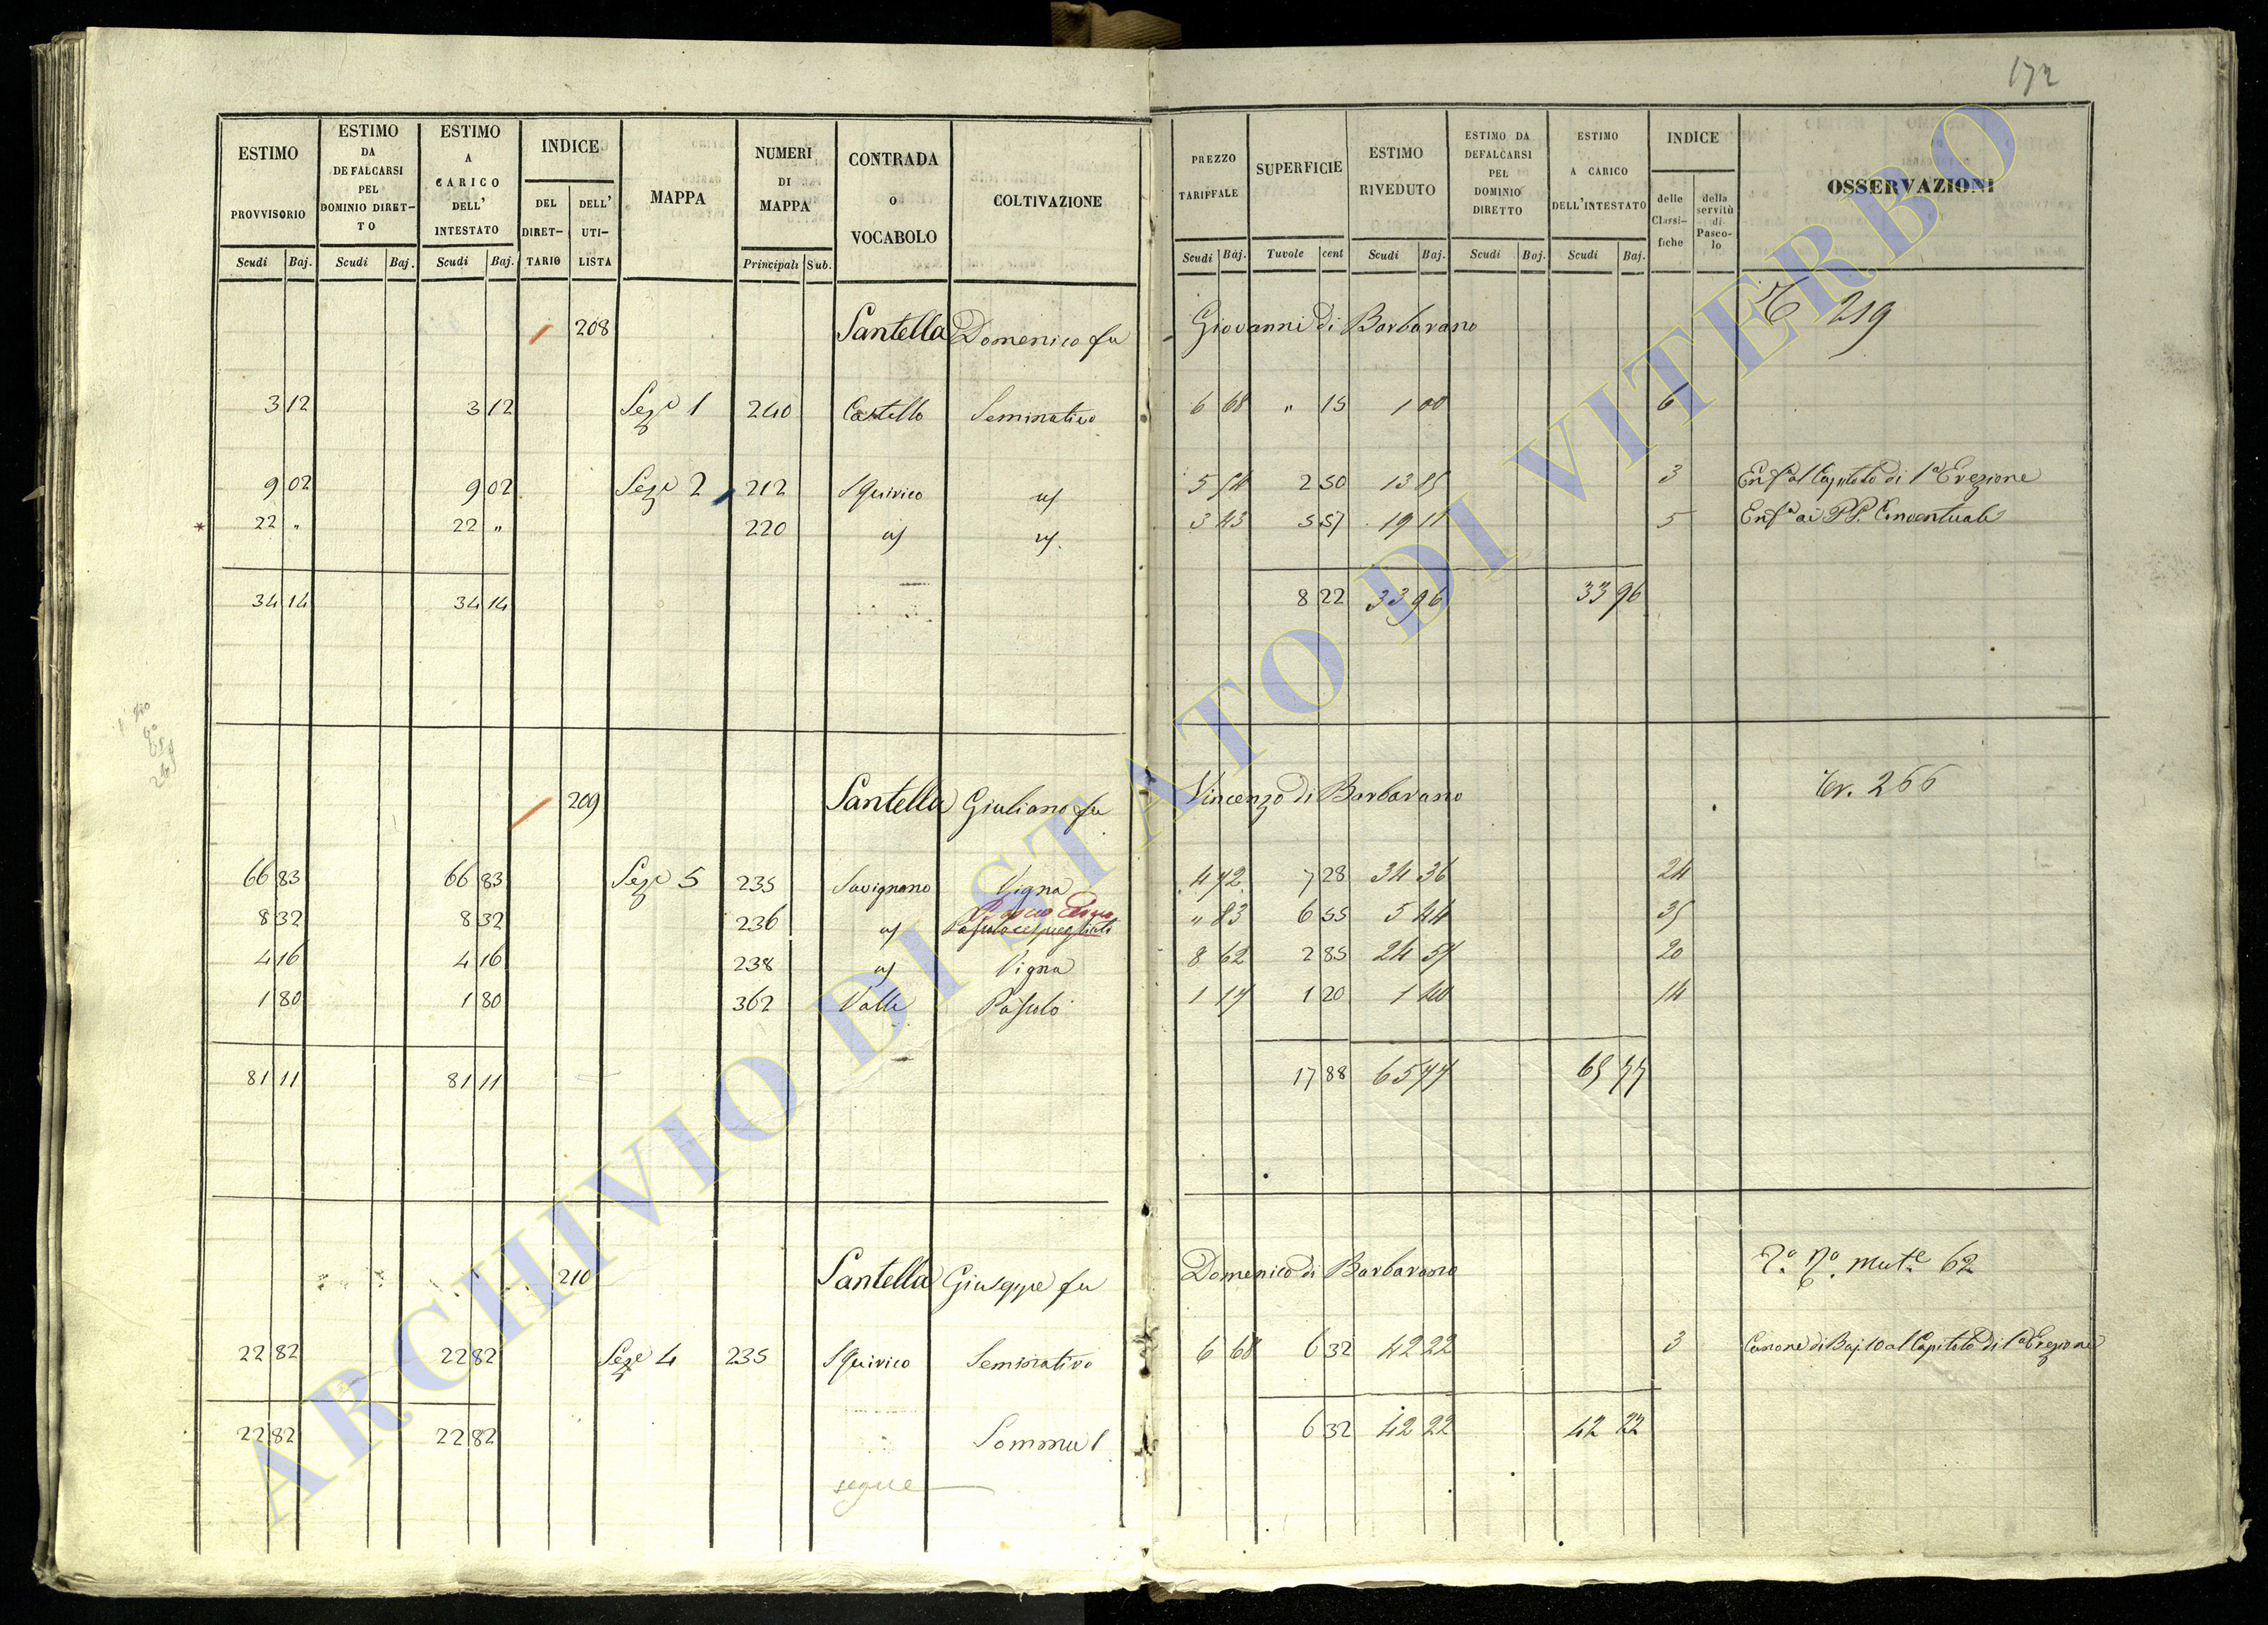 172
ESTIMO PROVVISORIO
ESTIMO DA DEFALCARSI PEL DOMINIO DIRET–TO
ESTIMO A CARICO DELL' INTESTATO
INDICE
DEL DIRET–TARIO
DELL' UTI–LISTA
MAPPA
NUMERI DI MAPPA
CONTRADA o VOCABOLO
COLTIVAZIONE
PREZZO TARIFFALE
SUPERFICIE
ESTIMO RIVEDUTO
ESTIMO DA DEFALCARSI PEL DOMINIO DIRETTO
ESTIMO A CARICO DELL'INTESTATO
INDICE
delle Classi–fiche
della servitù di Pasco–lo
OSSERVAZIONI
Scudi Baj. Scudi Baj. Scudi Baj. Principali Sub. Scudi Baj. Tavole cent Scudi Baj. Scudi Baj. Scudi Baj.
208 Santella Domenico fu Giovanni di Barbarano 219
3 12 3 12 Seze 1 240 Castello Seminativo 6 68 " 15 1 00 6
9 02 9 02 Seze 2 212 Squirico id 5 54 2 50 13 85 3 Enfa al Capitolo di 1a Erezione
22 " 22 " 220 id id 3 43 5 57 19 11 5 Enfa ai PP. Conventuali
34 14 34 14 8 22 33 96 33 96
209 Santella Giuliano fu Vincenzo di Barbarano Tr. 266
66 83 66 83 Seze 5 235 Savignano Vigna 4 72 7 28 34 36 24
8 32 8 32 236 id Pascolo cespugliato " 83 6 55 5 44 35
4 16 4 16 238 id Vigna 8 62 2 85 24 57 20
1 80 1 80 362 Valle Pascolo 1 17 1 20 1 40 14
81 11 81 11 17 88 65 77 65 77
210 Santella Giuseppe fu Domenico di Barbarano Mute 62
22 82 22 82 Seze 4 235 Squirico Seminativo 6 68 6 32 42 22 3 Canone di Baj 10 al Capitolo di 1a Erezione
22 82 22 82 Somma 6 32 42 22 42 22
segue
ARCHIVIO DI STATO DI VITERBO